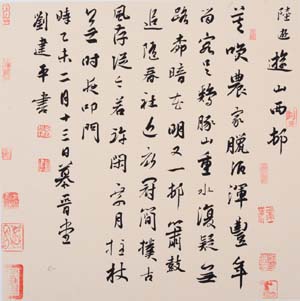 陸游 遊山西邨
莫笑農家臘酒渾豐年
留客足鷄豚山重水復疑無
路柳暗花明又一邨簫鼓
追隨春社近衣冠簡樸古
風存從今若許閑乘月拄杖
無時夜叩門
時乙未二月十三日慕晉堂
劉建平書